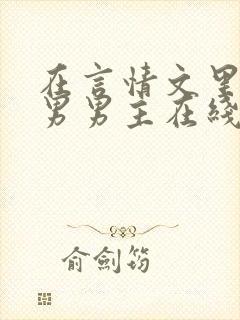 在言情文里
男男主在线
俞劍筠